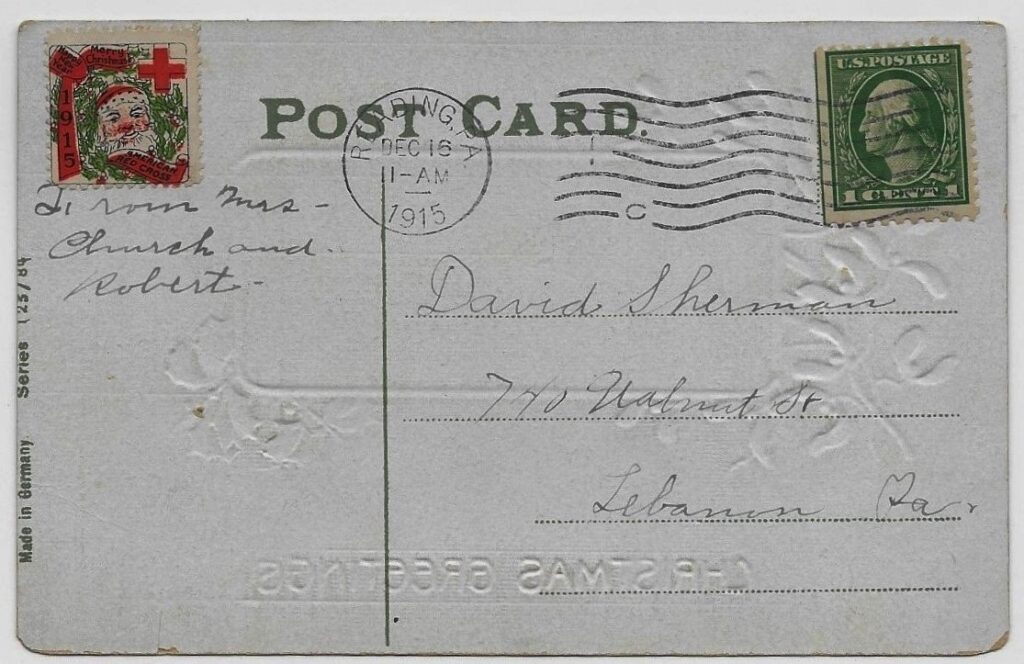 Merry
Christmas
1915
AMERICAN
RED CROSS
POST CARD.
READING, PA
DEC 16
11-AM
1915
C
U.S. POSTAGE
1 CENT 1
From Mrs-
Church and-
Robert-
David Sherman
740 Walnut St
Lebanon Pa.
Made in Germany. Series
CHRISTMAS GREETINGS